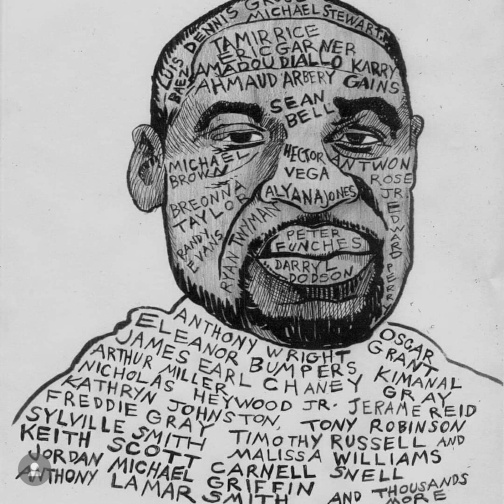 DENNIS
MICHAEL STEWART
LUIS BAEZ
TAMIR RICE
ERIC GARNER
AMADOU DIALLO
KARRY GAINS
AHMAUD ARBERY
SEAN BELL
MICHAEL BROWN
HECTOR VEGA
ANTWON ROSE JR.
ALYANA JONES
BREONNA TAYLOR
EDWARD PERRY
RANDY EVANS
RYAN TWYMAN
PETER FUNCHES
DARRYL DODSON
ANTHONY WRIGHT
OSCAR GRANT
ELEANOR BUMPERS
JAMES EARL CHANEY
KIMANAL GRAY
ARTHUR MILLER
NICHOLAS HEYWOOD JR.
JERAME REID
KATHRYN JOHNSTON,
TONY ROBINSON
FREDDIE GRAY
TIMOTHY RUSSELL AND
SYLVILLE SMITH
MALISSA WILLIAMS
KEITH SCOTT
CARNELL SNELL
JORDAN MICHAEL GRIFFIN
ANTHONY LAMAR SMITH
AND THOUSANDS MORE